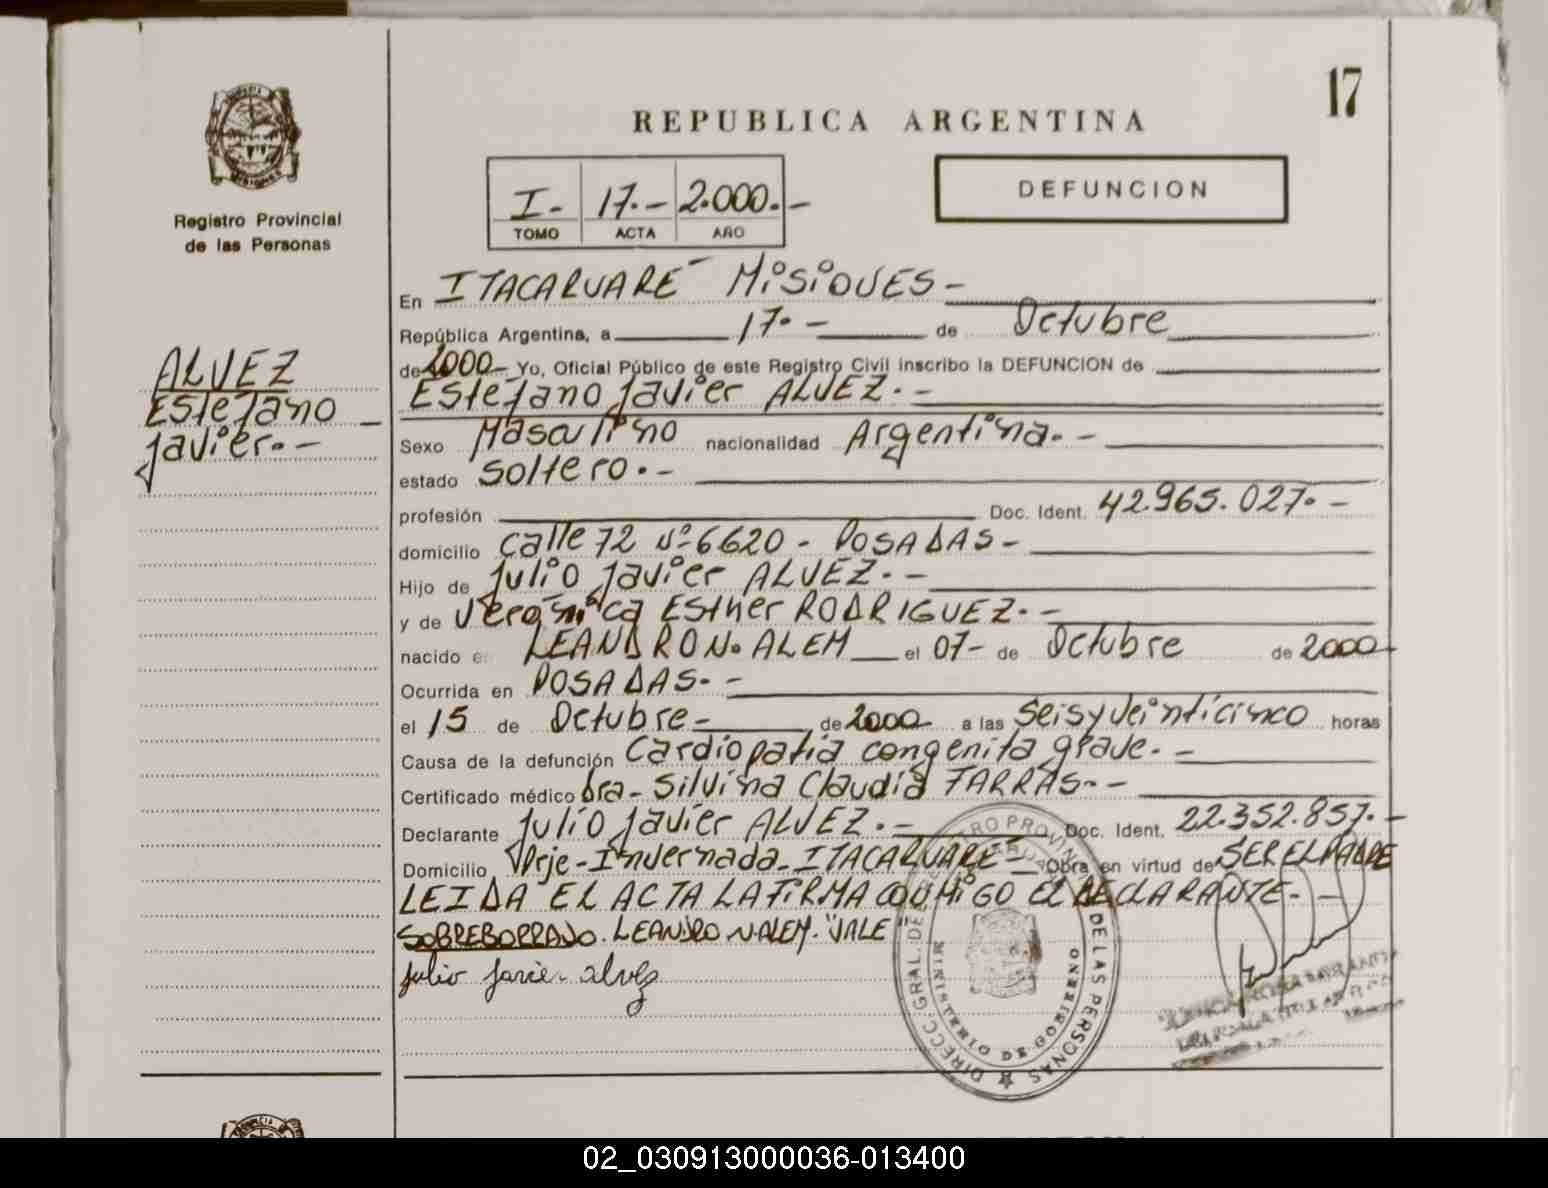 17
REPUBLICA ARGENTINA
DEFUNCION
I- 17.- 2.000.-
TOMO ACTA AÑO
Registro Provincial
de las Personas
ALVEZ
Estefano
Javier.-
En ITACARUARE - MiSiONES -
República Argentina, a 17.- de Octubre
de 2000- Yo, Oficial Público de este Registro Civil inscribo la DEFUNCION de
Estefano Javier ALVEZ.-
Sexo Masculino nacionalidad Argentina.-
estado Soltero.-
profesión Doc. Ident. 42.965.027.-
domicilio Calle 72 Nº 6620 - POSADAS -
Hijo de Julio Javier ALVEZ.-
y de Verónica Esther RODRIGUEZ.-
nacido e LEANDRO N. ALEM el 07- de Octubre de 2000-
Ocurrida en POSADAS.-
el 15 de Octubre- de 2000 a las Seis y Veinticinco horas
Causa de la defunción Cardiopatia congenita grave.-
Certificado médico Dra- Silvina Claudia FARRAS.-
Declarante Julio Javier ALVEZ.- Doc. Ident. 22.352.857.-
Domicilio Prje- Invernada- ITACARUARE- Obra en virtud de SER EL PADRE
LEIDA EL ACTA LA FiRMA CONMiGO El DECLARANTE.-
SOBREBORRADO. LEANDRO N ALEM. "VALE"
Julio Javier Alvez
DIRECC. GRAL. DE REGISTRO PROVINCIAL DE LAS PERSONAS
MINISTERIO DE GOBIERNO
02_030913000036-013400